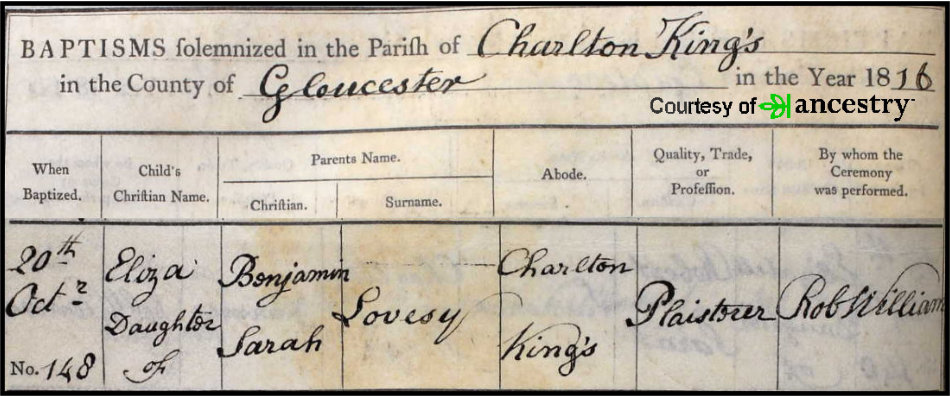 BAPTISMS ſolemnized in the Pariſh of Charlton King's
in the County of Gloucester in the Year 1816
Courtesy of ancestry
When Baptized.
Child's Chriſtian Name.
Parents Name.
Chriſtian.
Surname.
Abode.
Quality, Trade, or Profeſſion.
By whom the Ceremony was performed.
20th Octr
No. 148
Eliza Daughter of
Benjamin Sarah
Lovesy
Charlton King's
Plaisterer
Rob Williams